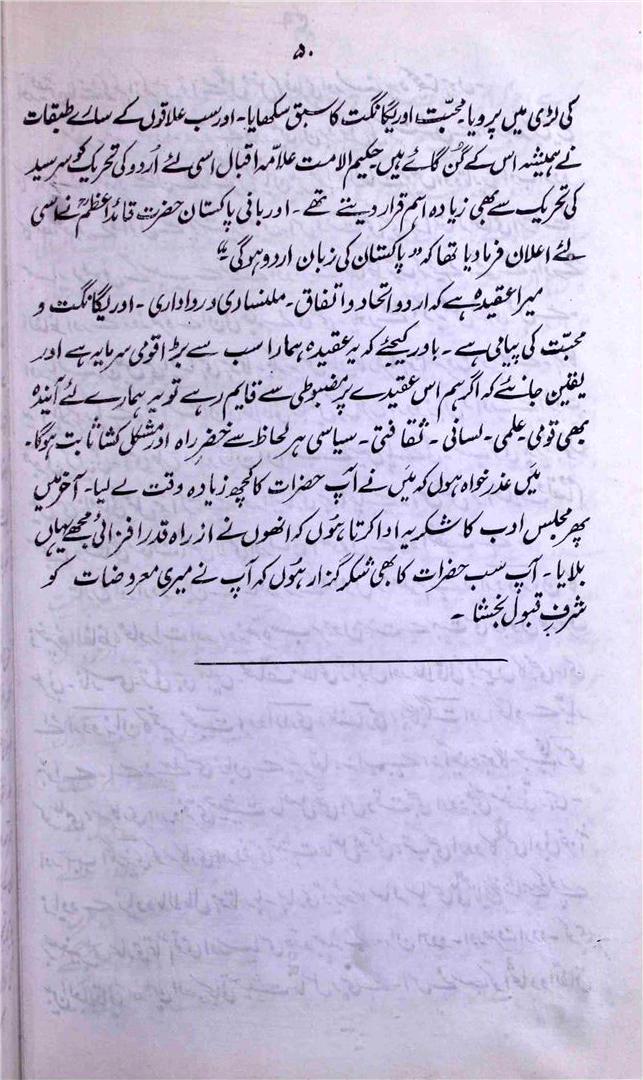 ۵۰
کی لڑی میں پرویا۔ محبّت اور یگانگت کا سبق سکھایا۔ اور سب علاقوں کے سارے طبقات
نے ہمیشہ اس کے گُن گائے ہیں حکیم الامت علامہ اقبال اسی لئے اُردو کی تحریک کو سرسید
کی تحریک سے بھی زیادہ اہم قرار دیتے تھے۔ اور بانی پاکستان حضرت قائد اعظمؒ نے اسی
لئے اعلان فرما دیا تھا کہ “پاکستان کی زبان اردو ہوگی”
میرا عقیدہ ہے کہ اردو اتحاد و اتفاق۔ ملنساری و رواداری۔ اور یگانگت و
محبّت کی پیامی ہے۔ باور کیجئے کہ یہ عقیدہ ہمارا سب سے بڑا قومی سرمایہ ہے اور
یقین جانئے کہ اگر ہم اس عقیدے پر مضبوطی سے قایم رہے تو یہ ہمارے لئے آیندہ
بھی قومی علمی۔ لسانی۔ ثقافتی۔ سیاسی ہر لحاظ سے خضرِ راہ اور مشکل کشا ثابت ہوگا۔
میں عذر خواہ ہوں کہ میں نے آپ حضرات کا کچھ زیادہ وقت لے لیا۔ آخر میں
پھر مجلس ادب کا شکریہ ادا کرتا ہوں کہ انھوں نے از راہ قدر افزائی مجھے یہاں
بلایا۔ آپ سب حضرات کا بھی شکر گزار ہوں کہ آپ نے میری معروضات کو
شرفِ قبول بخشا۔